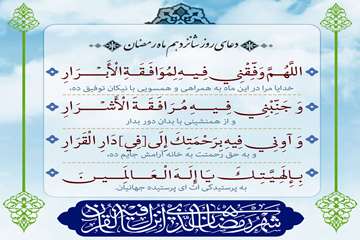 دعای روز شانزدهم ماه رمضان
اللَّهُمَّ وَفِّقْنِي فِيهِ لِمُوَافَقَةِ الْأَبْرَارِ
خدایا مرا در این ماه به همراهی و همسویی با نیکان توفیق ده،
وَ جَنِّبْنِي فِيهِ مُرَافَقَةَ الْأَشْرَارِ
و از همنشینی با بدان دور بدار
وَ آوِنِي فِيهِ بِرَحْمَتِكَ إِلَى [فِي] دَارِ الْقَرَارِ
و به حق رحمتت به خانه آرامش جایم ده،
بِإِلَهِيَّتِكَ يَا إِلَهَ الْعَالَمِينَ
به پرستیدگی ات ای پرستیده جهانیان.
شهر رمضان الذی انزل فیه القرآن